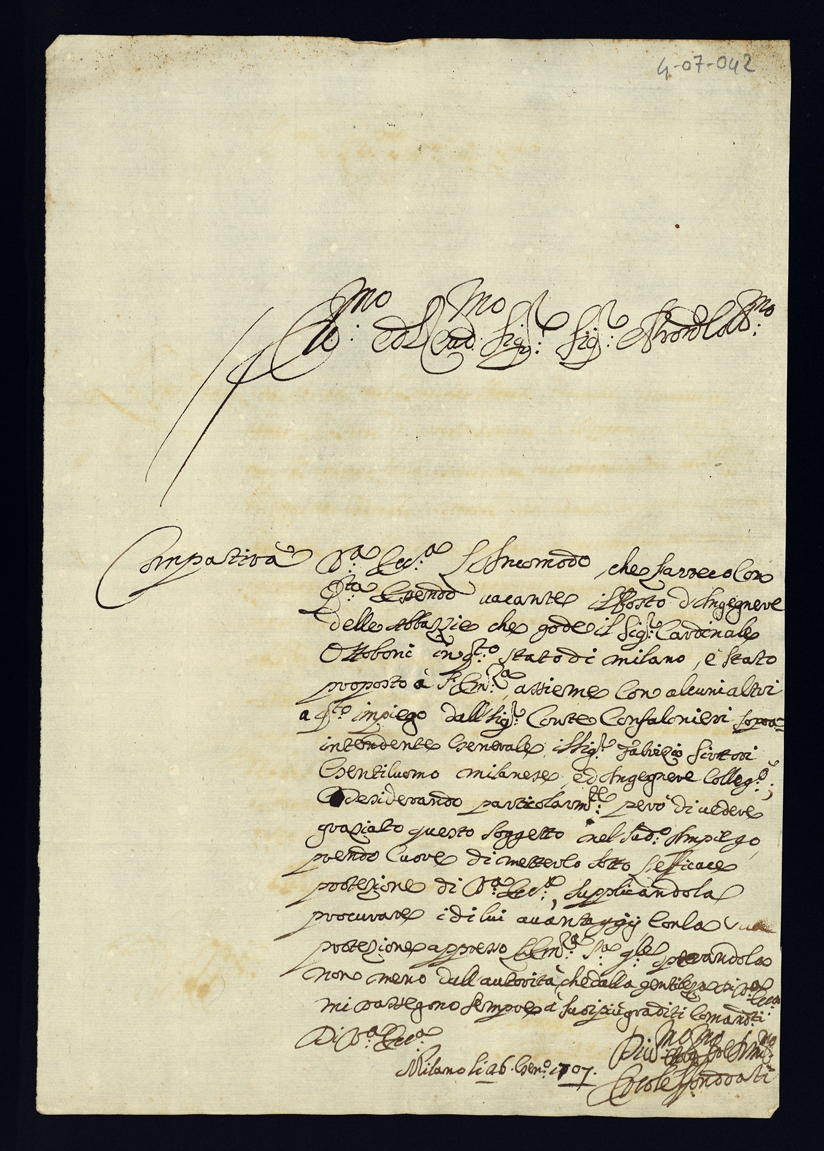 4-07-042
Ill.mo ed Ecc.mo Sig.r Sig.r Prōn Col.mo
Compatirà V.ra Ecc.a L'Incomodo, che Le arreco Con
q.sta Essendo vacante il Posto d'Ingegnere
delle Abbazzie che gode il Sig.r Cardinale
Ottoboni in q.sto stato di milano, è stato
proposto à S. Em.za assieme Con alcuni altri
a q.sto impiego dall Sig.r Conte Confalonieri sopra=
intendente Generale il Sig.r Fabrizio Sirtori
Gentiluomo milanese ed Ingegnere Colleg.o;
desiderando particolarm.te però di vedere
graziato questo soggetto nel sud.o Impiego,
prendo Cuore di metterlo sotto L'efficace
protezione di V.ra Ecc.a, supplicandola
procurare i di lui avantaggij Con la
protezione appresso L'Em.za Sua, q.le sperandola
non meno dall'autorità, che dalla gentilezza di V.ra Ecc.a
mi rassegno sempre à suoi più graditi Comandi
Di V.ra Ecc.a
Milano li 26. Gen.o 1707.
Ercole